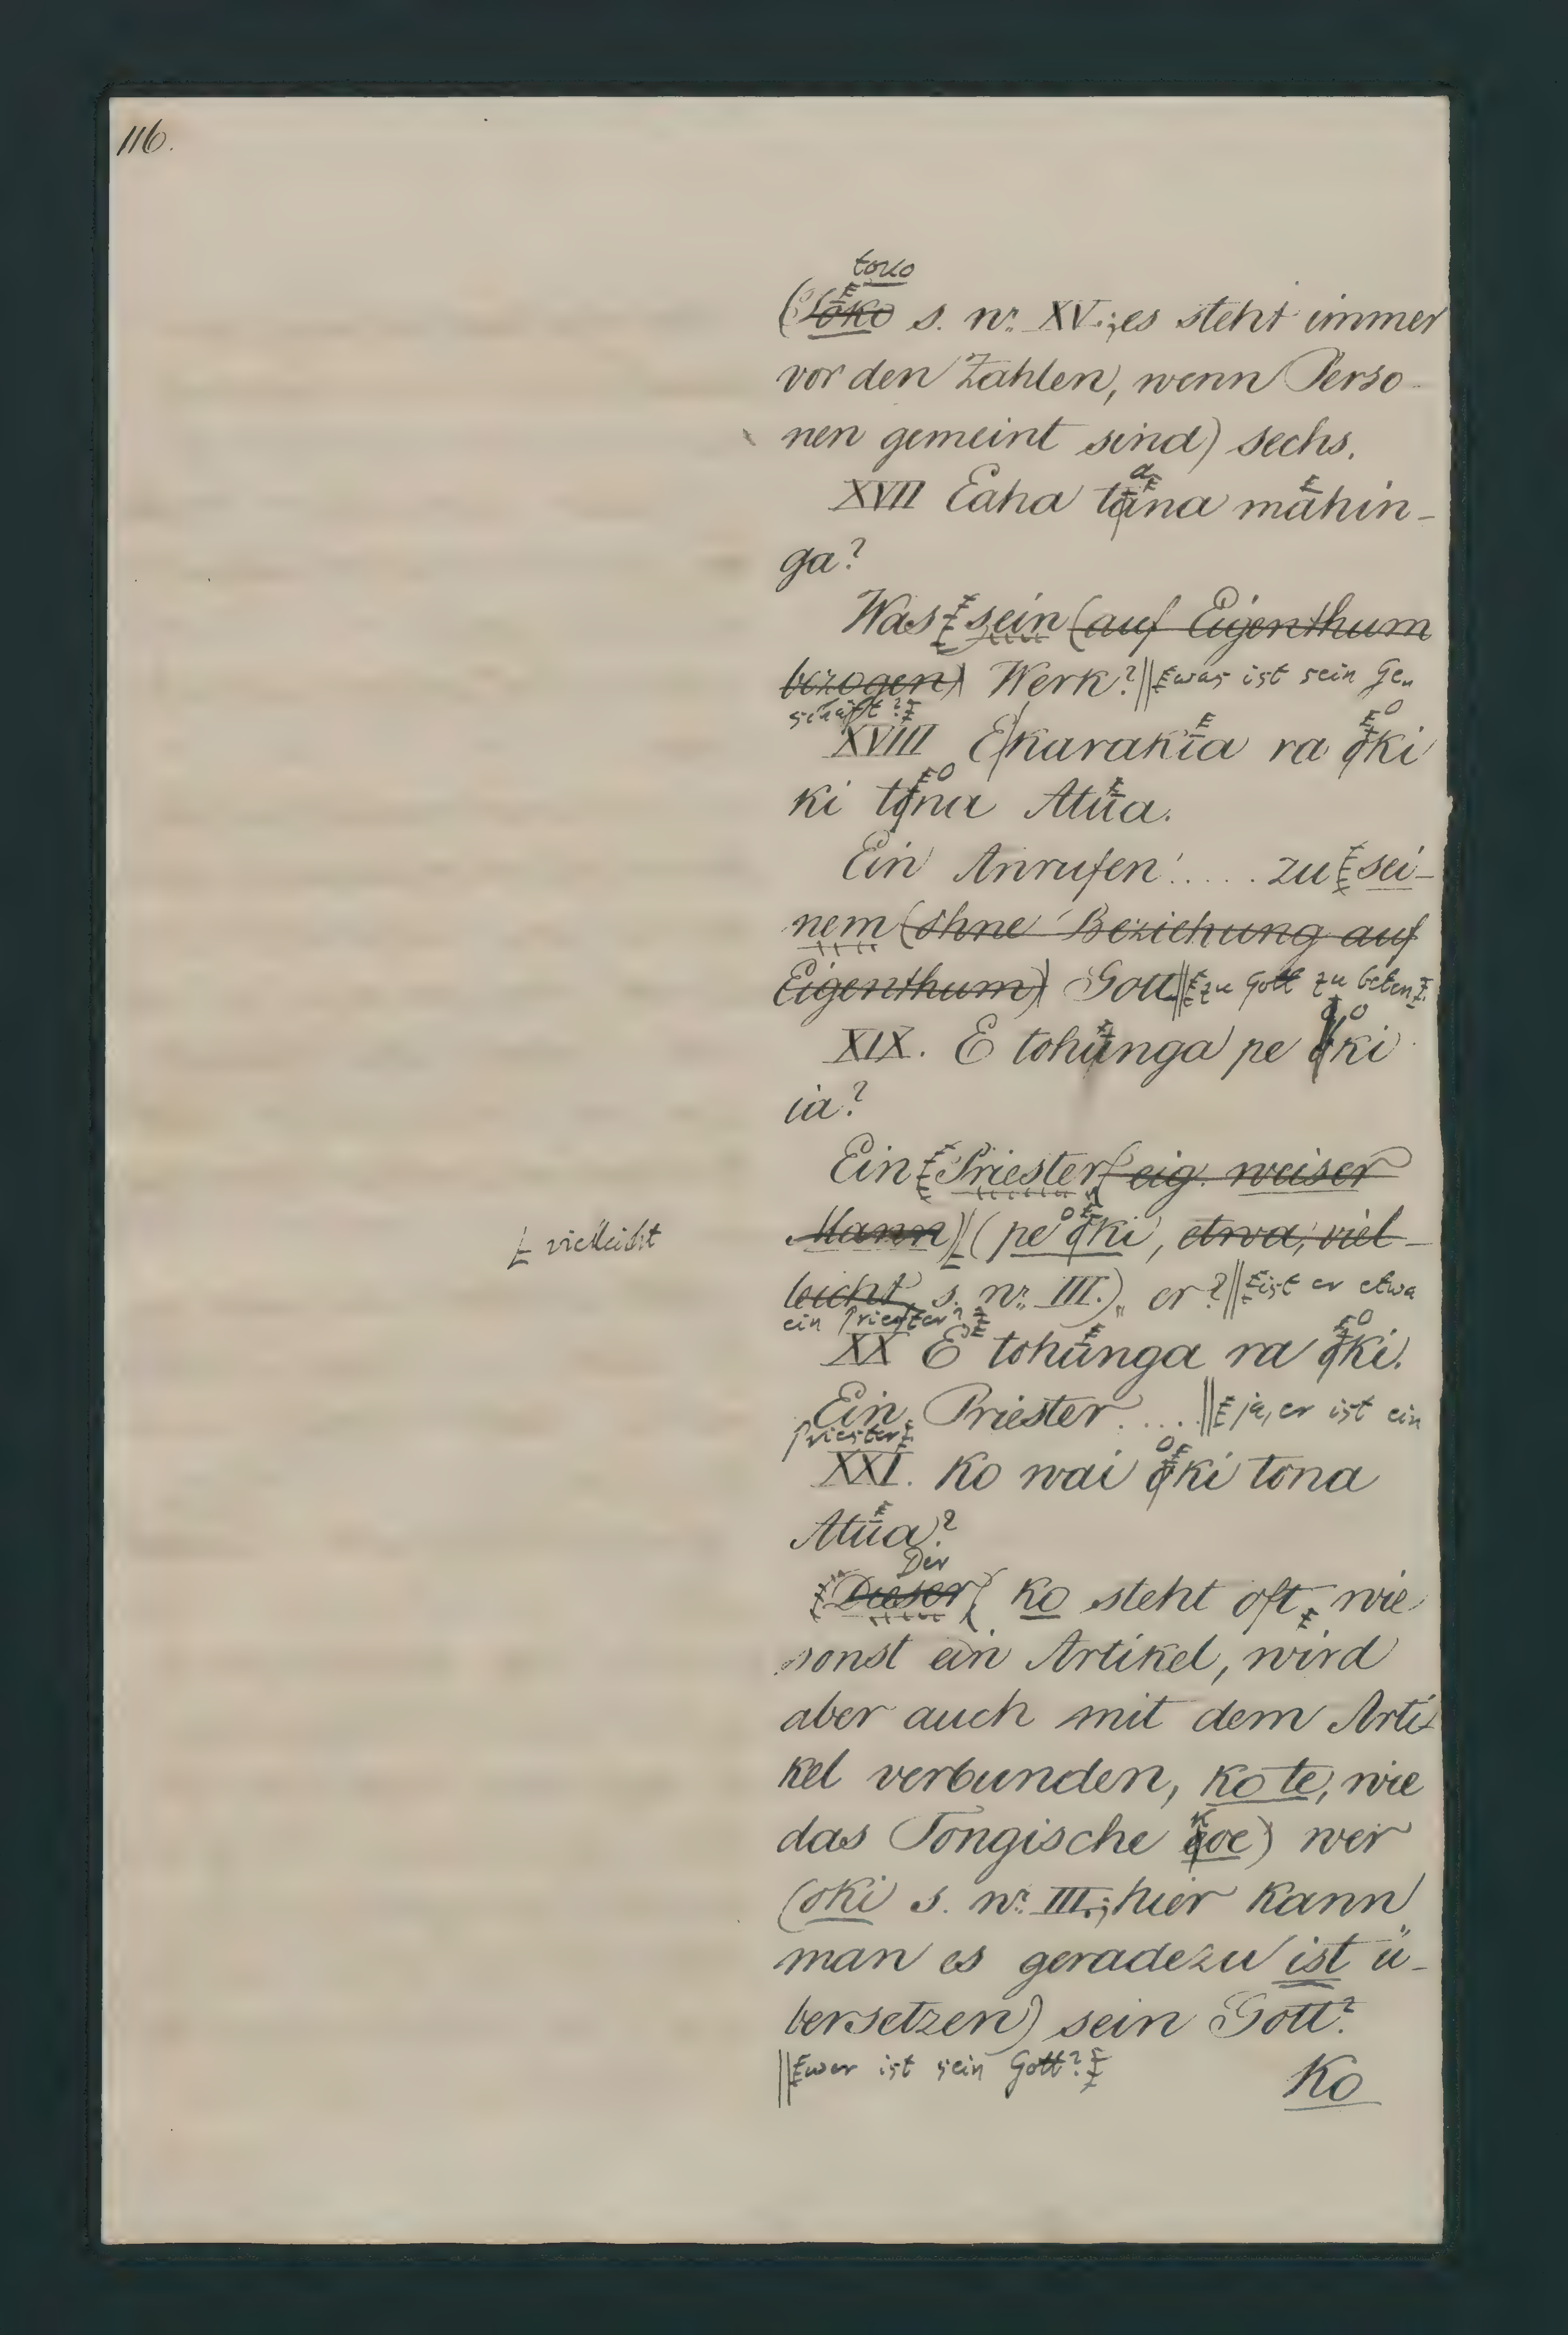 116.
toko
(Tōko s. nr. XV.; es steht immer
vor den Zahlen, wenn Perso-
nen gemeint sind) sechs.
XVII Eaha tana māhin-
ga?
Was sein (auf Eigenthum
bezogen) Werk? || was ist sein Ge-
schäft?
XVIII E karakīa ra oki
ki tona Atūa.
Ein Anrufen . . . . . zu sei-
nem (ohne Beziehung auf
Eigenthum) Gott || zu Gott zu beten.
XIX. E tohūnga pe oki
ia?
Ein Priester (eig. weiser
Mann) (pe oki, etwa, viel-
vielleicht
leicht, s. nr. III.) er? || ist er etwa
ein Priester?
XX E tohūnga ra oki.
Ein Priester . . . . || ja, er ist ein
Priester
XXI. Ko wai oki tona
Atūa?
Der
Dieser ( ko steht oft, wie
sonst ein Artikel, wird
aber auch mit dem Arti-
kel verbunden, ko te, wie
das Tongische koe) wer
(oki s. nr. III.; hier kann
man es geradezu ist ü-
bersetzen) sein Gott?
|| wer ist sein Gott?
Ko